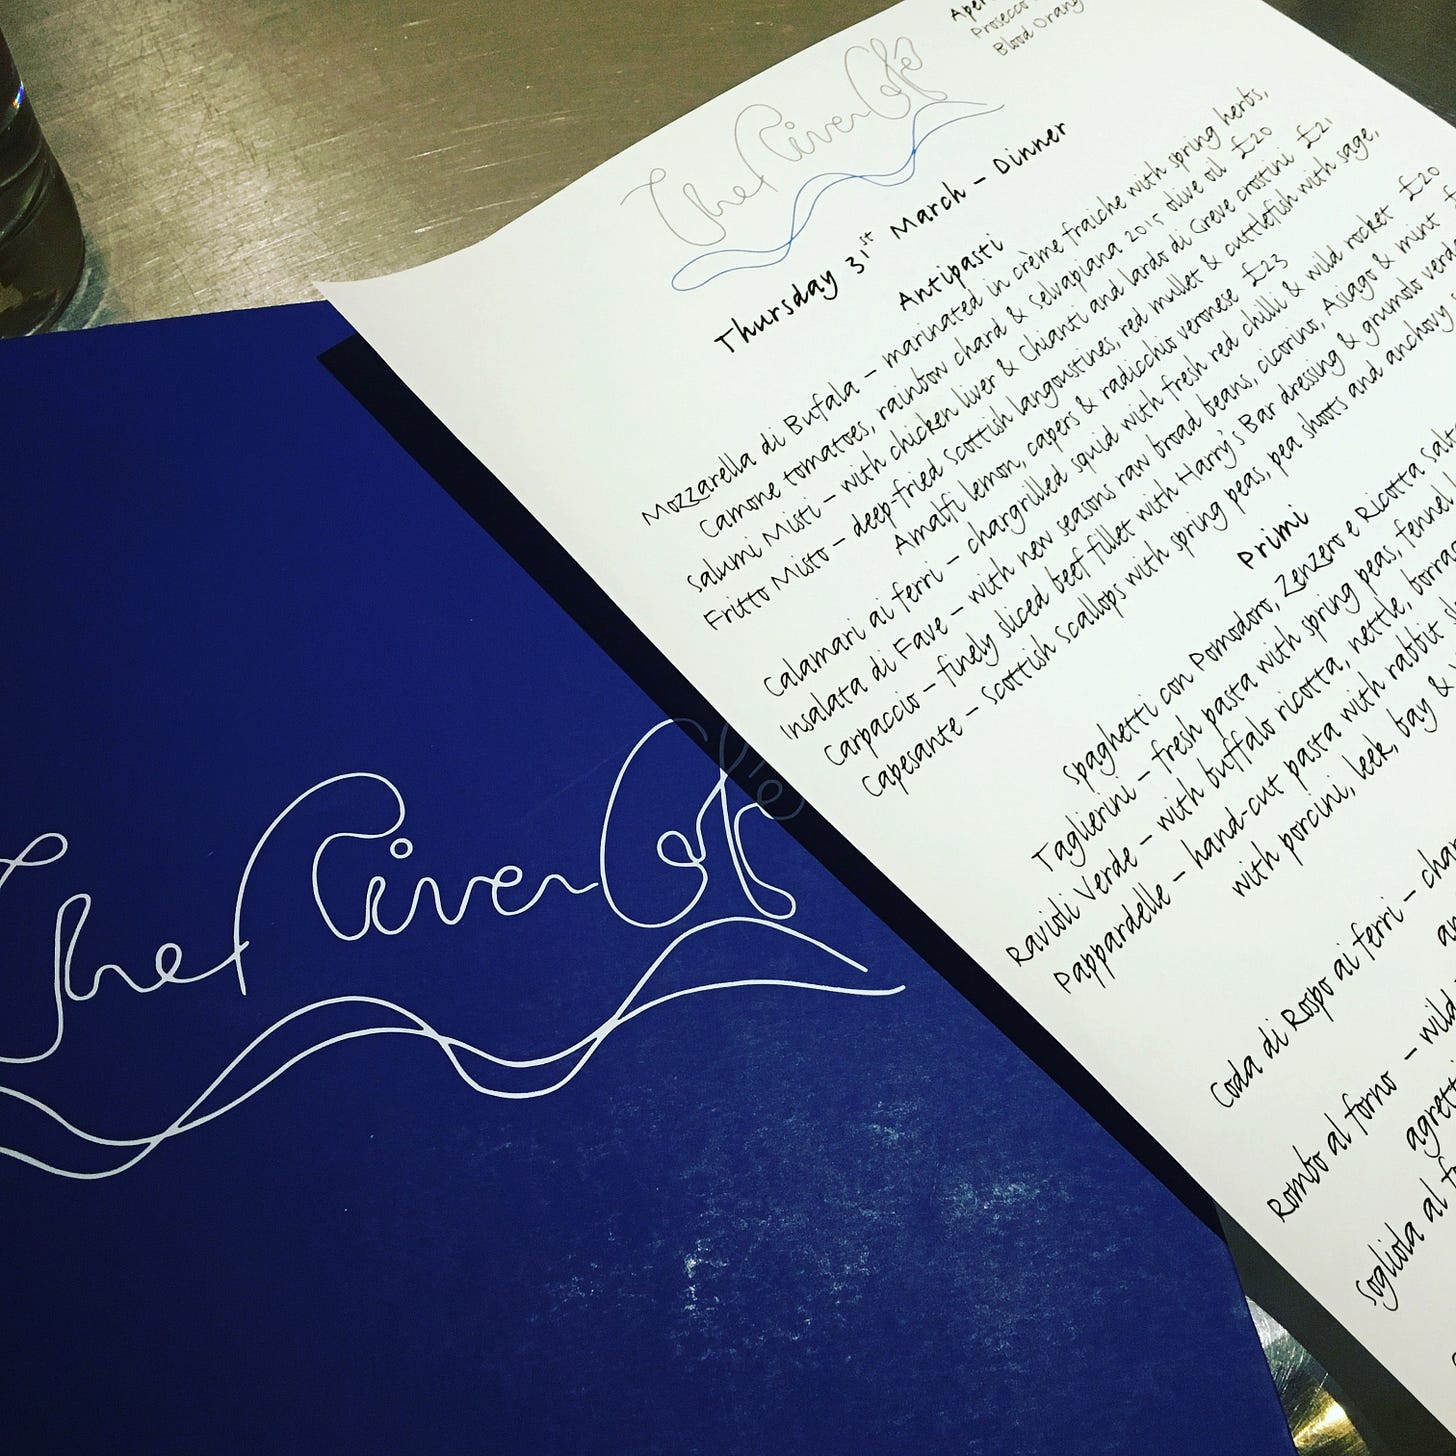 The River Cafe
Aper
Prosecco
Blood Orang
The River Café
Thursday 31st March – Dinner
Antipasti
Mozzarella di Bufala – marinated in crème fraiche with spring herbs,
Camone tomatoes, rainbow chard & Selvapiana 2015 olive oil £20
Salumi Misti – with chicken liver & Chianti and lardo di Greve crostini £21
Fritto Misto – deep-fried Scottish langoustines, red mullet & cuttlefish with sage,
Amalfi lemon, capers & radicchio veronese £23
Calamari ai ferri – chargrilled squid with fresh red chilli & wild rocket £20
Insalata di Fave – with new seasons raw broad beans, cicorino, Asiago & mint
Carpaccio – finely sliced beef fillet with Harry's Bar dressing & grumolo verd
Capesante – Scottish scallops with spring peas, pea shoots and anchovy
Primi
Spaghetti con Pomodoro, Zenzero e Ricotta Salat
Taglierini – fresh pasta with spring peas, fennel
Ravioli Verde – with buffalo ricotta, nettle, borrag
Pappardelle – hand-cut pasta with rabbit s
with porcini, leek, bay &
Coda di Rospo ai ferri – char
an
Rombo al forno – wild
agretti
Sogliola al f